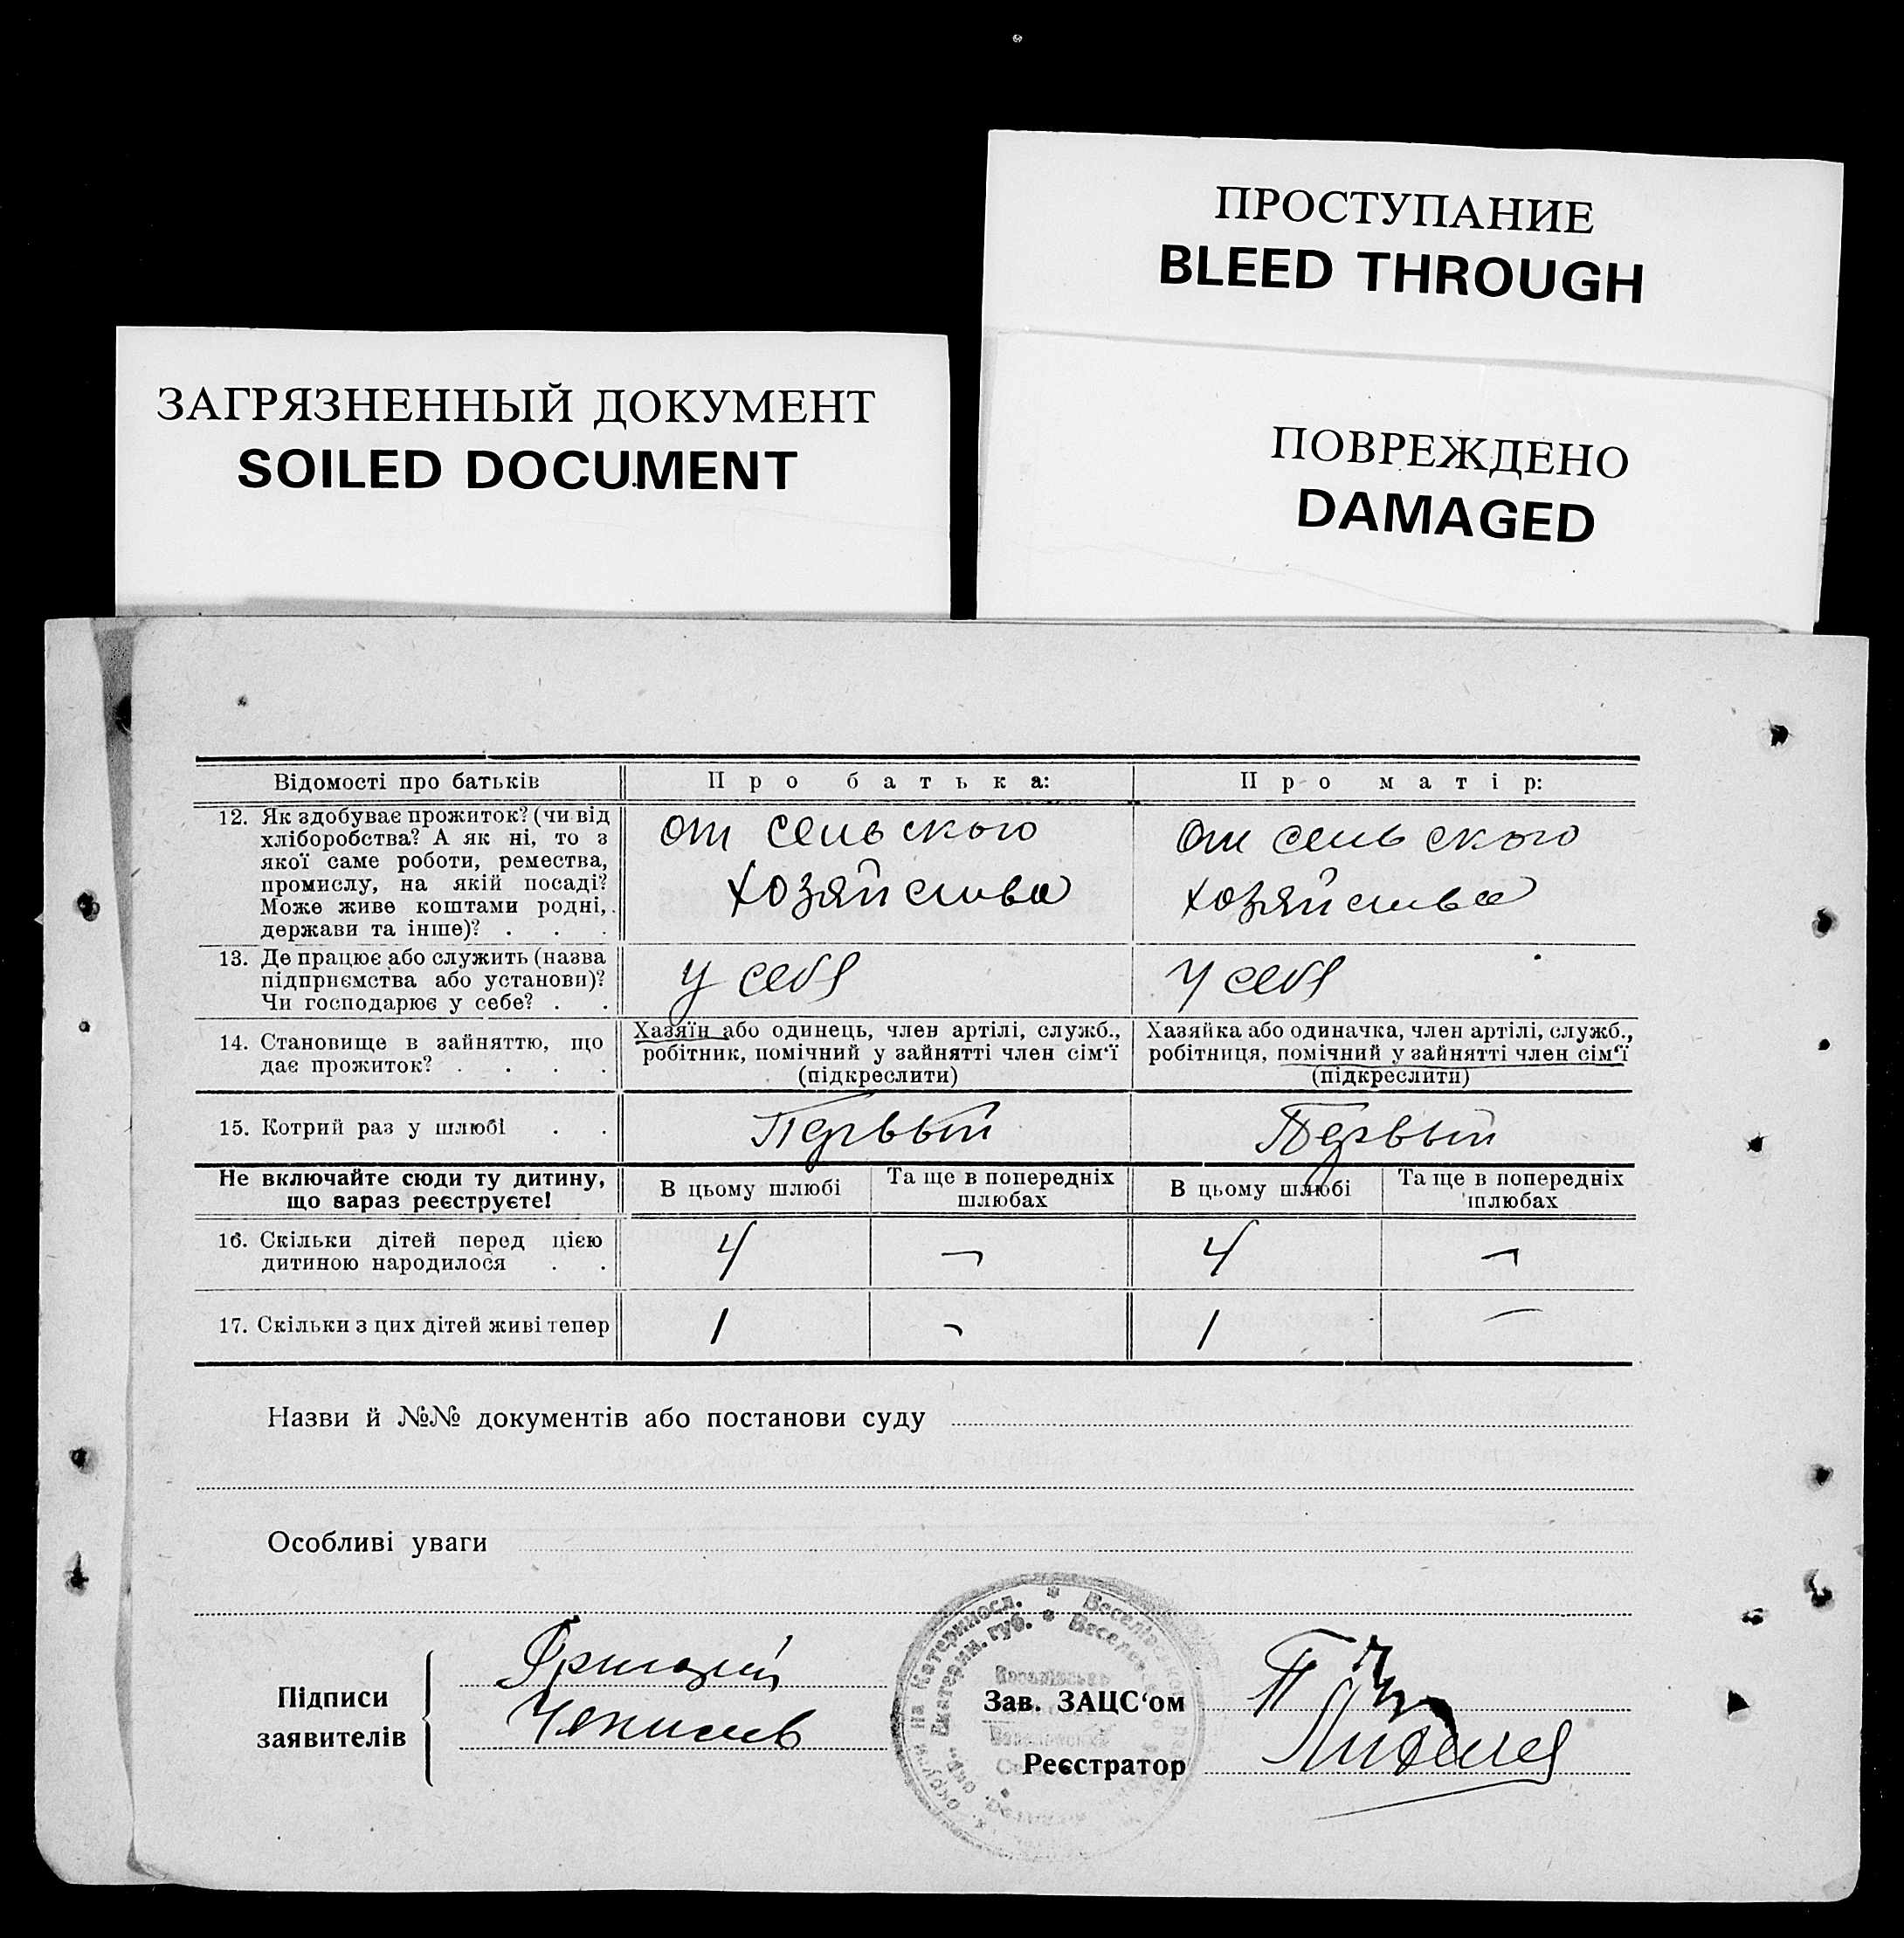 ПРОСТУПАНИЕ
BLEED THROUGH
ЗАГРЯЗНЕННЫЙ ДОКУМЕНТ
SOILED DOCUMENT
ПОВРЕЖДЕНО
DAMAGED
Відомості про батьків
Про батька:
Про матір:
12. Як здобуває прожиток? (чи від
хліборобства? А як ні, то з
якої саме роботи, ремества,
промислу, на якій посаді?
Може живе коштами родні,
держави та інше)? . . .
от сельского
хозяйства
от сельского
хозяйства
13. Де працює або служить (назва
підприємства або установи)?
Чи господарює у себе? . .
у себя
у себя
14. Становище в зайняттю, що
дає прожиток? . . . .
Хазяїн або одинець, член артілі, служб.,
робітник, помічний у зайнятті член сім'ї
(підкреслити)
Хазяйка або одиначка, член артілі, служб.,
робітниця, помічний у зайнятті член сім'ї
(підкреслити)
15. Котрий раз у шлюбі . .
Первый
Первый
Не включайте сюди ту дитину,
що зараз реєструєте!
В цьому шлюбі
Та ще в попередніх
шлюбах
В цьому шлюбі
Та ще в попередніх
шлюбах
16. Скільки дітей перед цією
дитиною народилося . .
4
—
4
—
17. Скільки з цих дітей живі тепер
1
—
1
—
Назви й №№ документів або постанови суду
Особливі уваги
Підписи
заявителів
Григорій
Зав. ЗАЦС'ом
Реєстратор